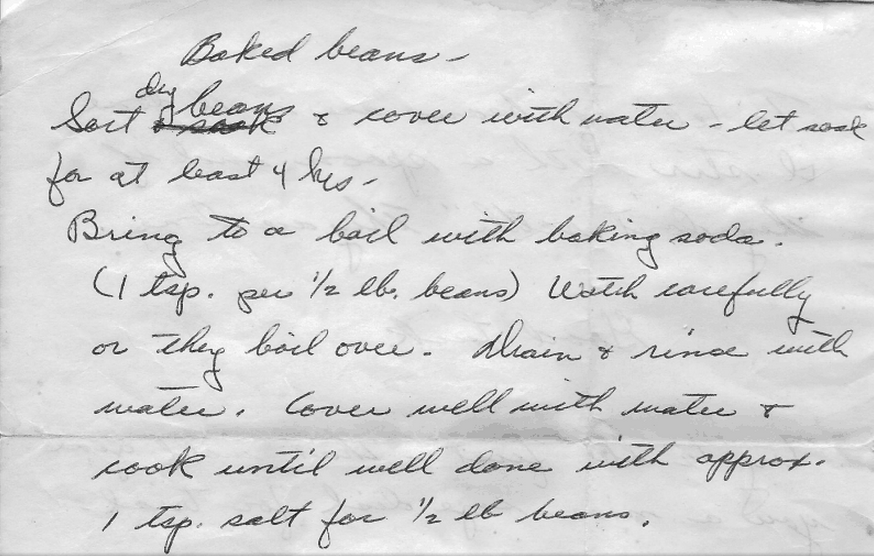 Baked beans -
Sort dry beans & cover with water - let soak
for at least 4 hrs -
Bring to a boil with baking soda.
(1 tsp. per 1/2 lb. beans) Watch carefully
or they boil over. Drain & rinse with
water. Cover well with water &
cook until well done with approx.
1 tsp. salt for 1/2 lb beans.